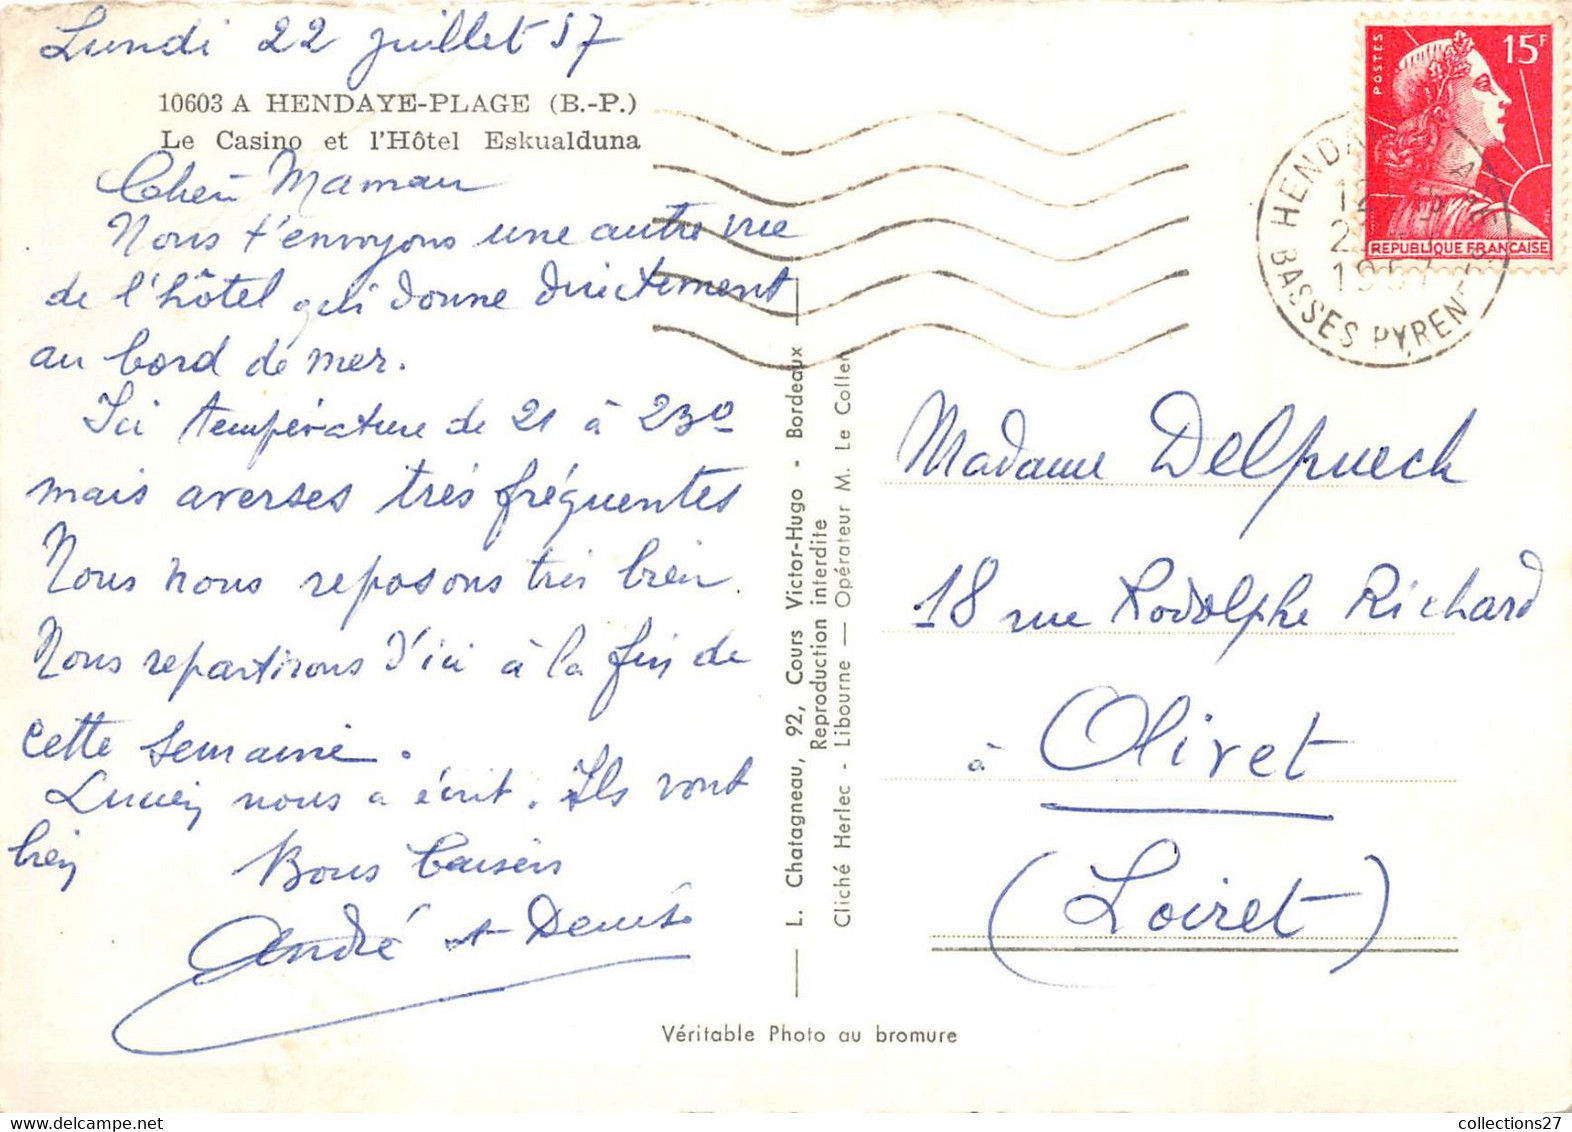 Lundi 22 juillet 57
10603 A HENDAYE-PLAGE (B.-P.)
Le Casino et l'Hôtel Eskualduna
Chère Maman
Nous t'envoyons une autre vue
de l'hôtel qui donne directement
au bord de mer.
Ici température de 21 à 23°
mais averses très fréquentes
Nous nous reposons très bien.
Nous repartirons d'ici à la fin de
cette semaine.
Lucien nous a écrit. Ils vont
bien
Bons baisers
André et Denise
L. Chatagneau, 92, Cours Victor-Hugo - Bordeaux
Reproduction interdite
Cliché Herlec - Libourne — Opérateur M. Le Collen
Véritable Photo au bromure
POSTES
15F
REPUBLIQUE FRANÇAISE
HENDAYE PLAGE
12
1957
BASSES PYRENEES
Madame Delpuech
18 rue Rodolphe Richard
à Olivet
(Loiret)
collections27